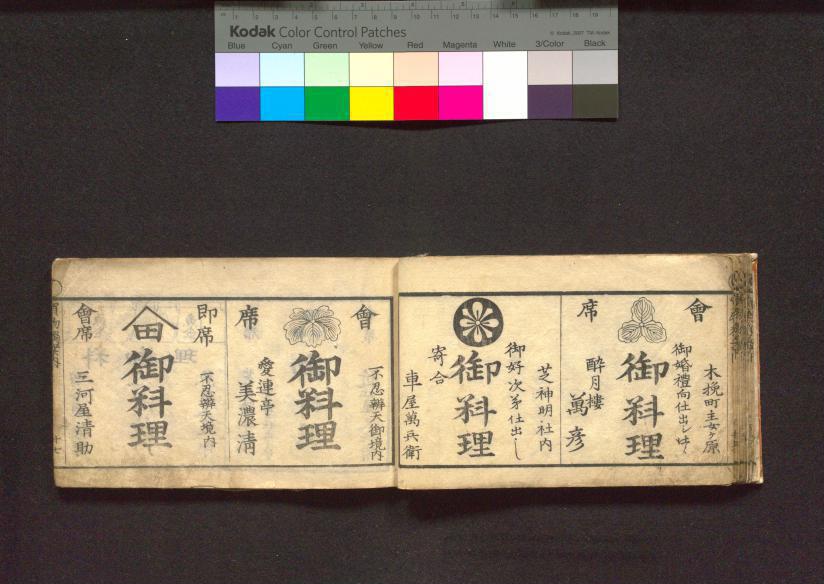 Kodak Color Control Patches
© Kodak, 2007 TM: Kodak
Blue Cyan Green Yellow Red Magenta White 3/Color Black
會席
木挽町采女ヶ原
御婚禮向仕出し仕候
御料理
酔月樓
萬彦
芝神明社内
御好次第仕出し
御料理
寄合
車屋萬兵衛
會席
不忍辨天御境内
御料理
愛連亭
美濃清
即席
不忍辨天境内
田
御料理
會席
三河屋清助
十七